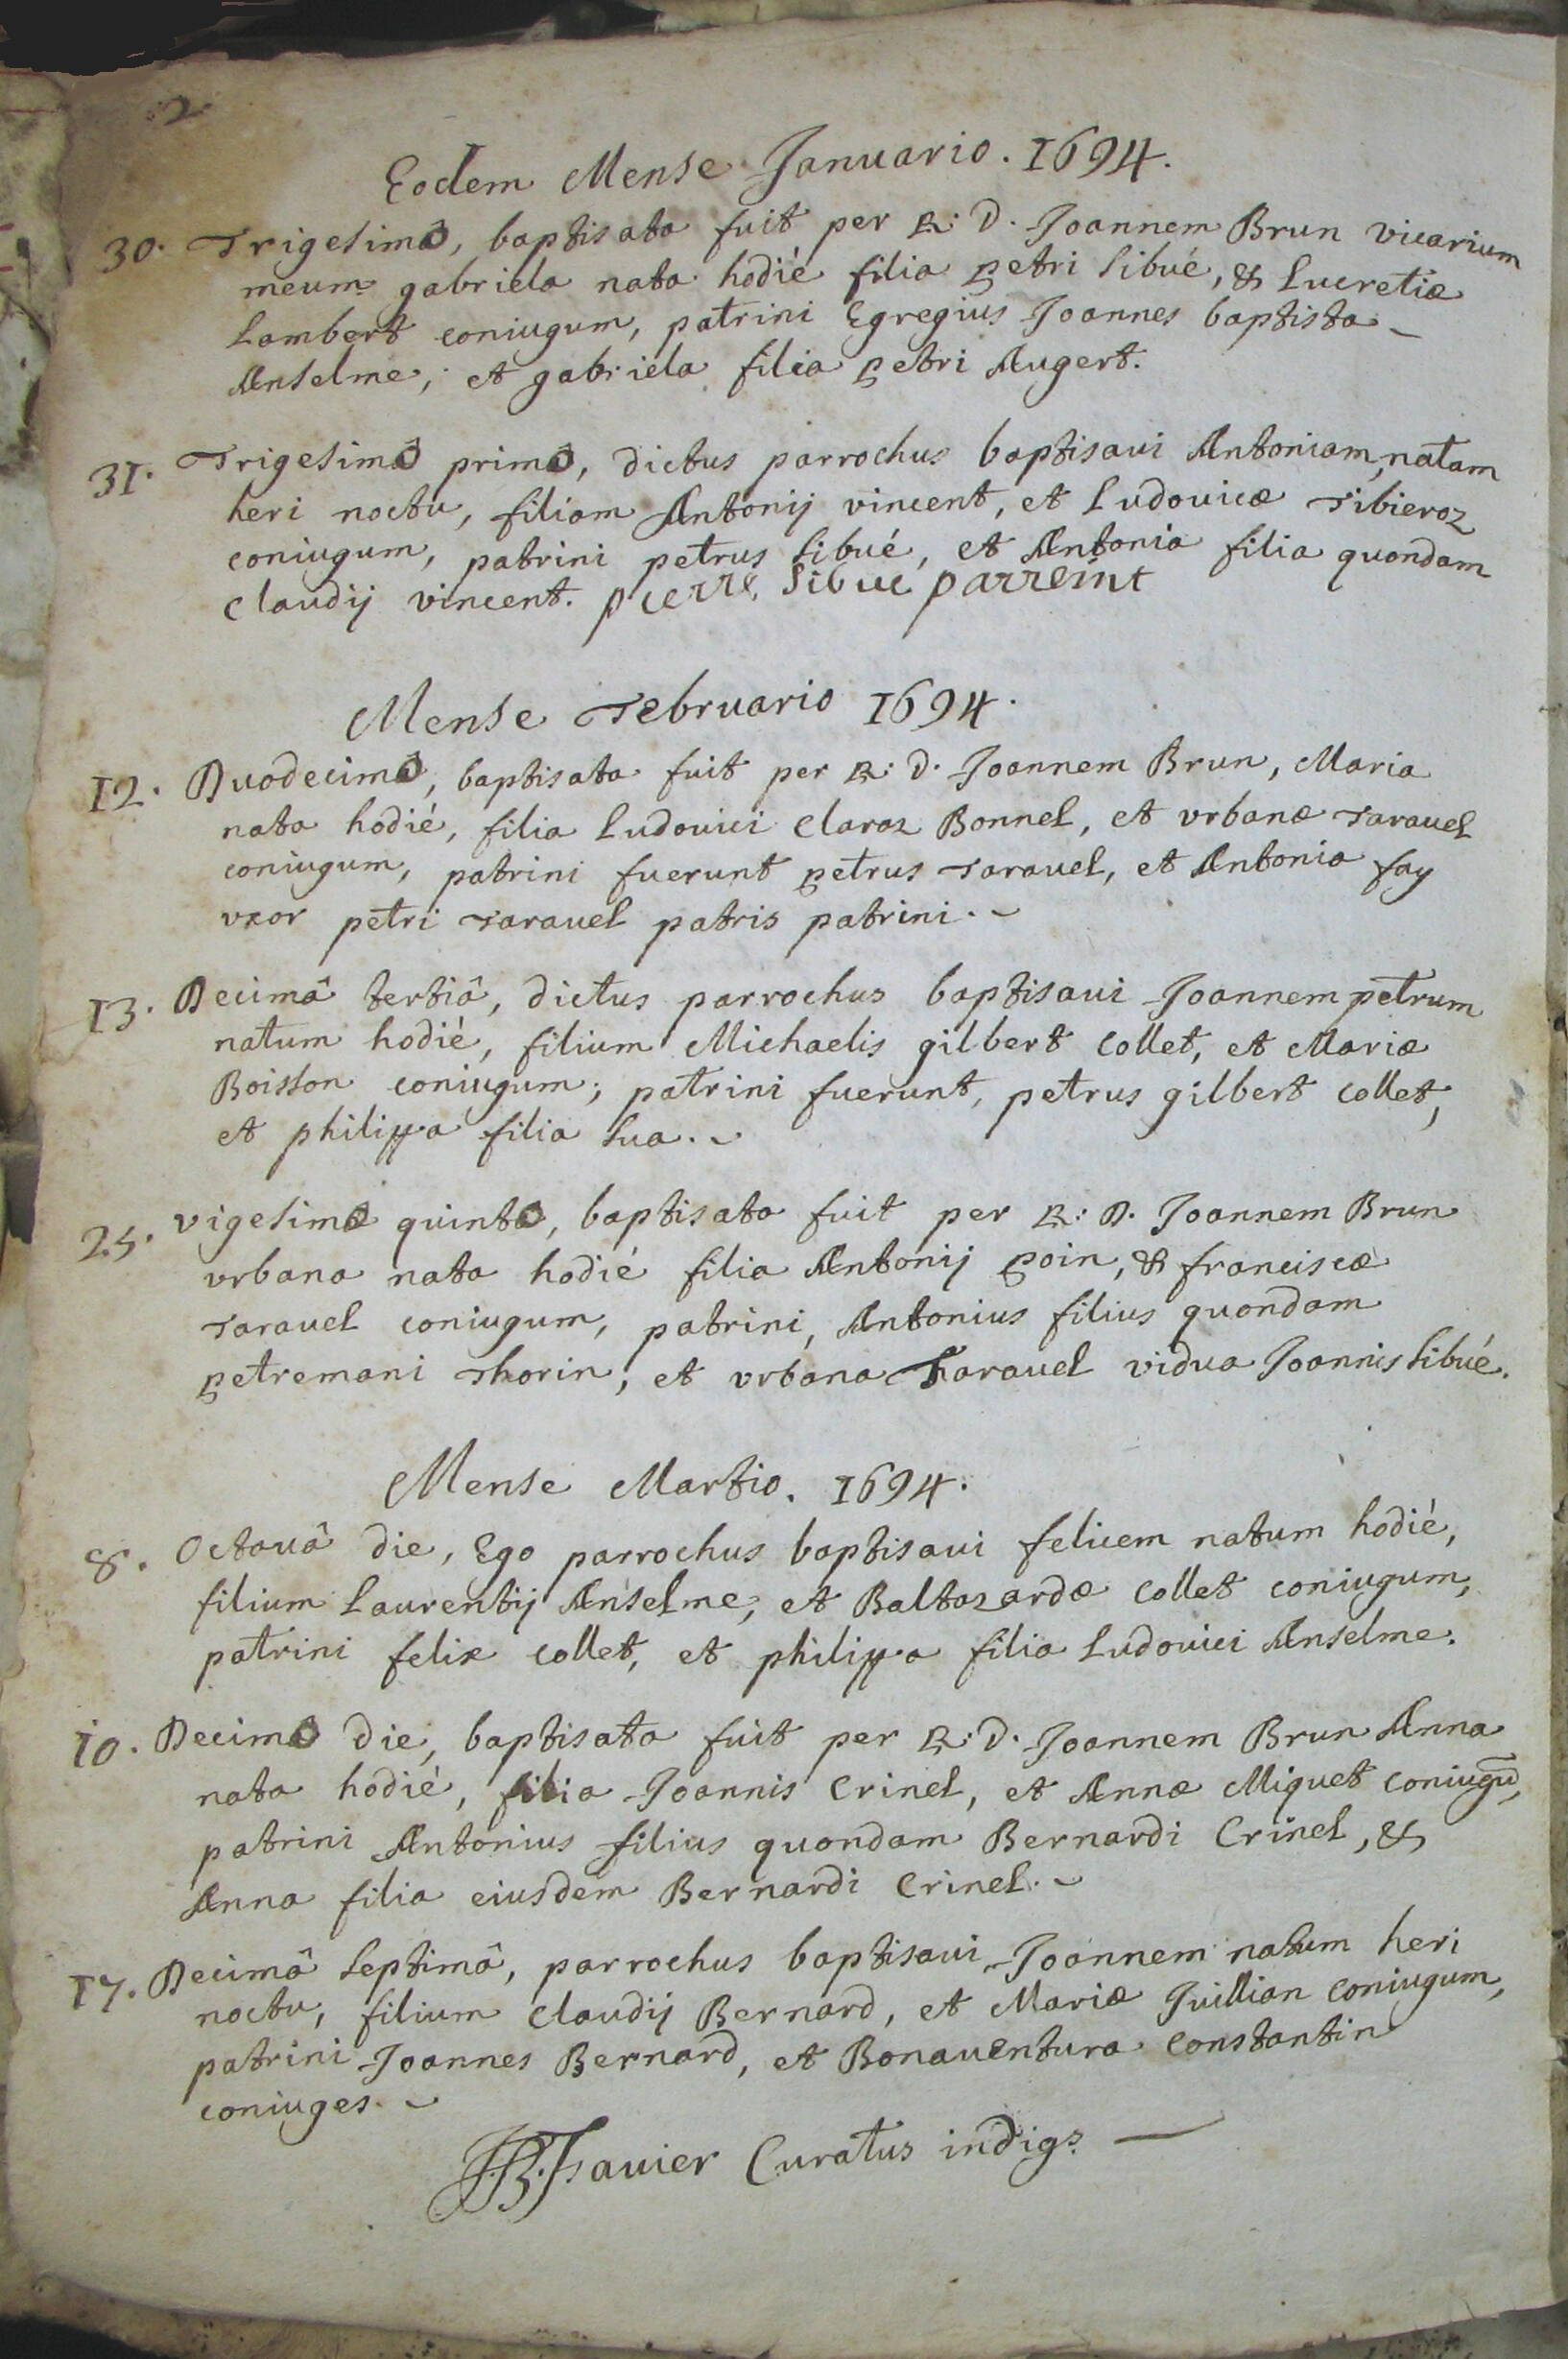 2
Eodem Mense Januario. 1694.
30. Trigesimâ, baptisata fuit per R: D. Joannem Brun vicarium
meum gabriela nata hodié filia petri Sibué, & Lucretiæ
Lambert coniugum, patrini Egregius Joannes baptista
Anselme, et gabriela filia petri Augert.
31. Trigesimâ primâ, dictus parrochus baptisaui Antoniam, natam
heri noctu, filiam Antonij vincent, et Ludouicæ Tibieroz
coniugum, patrini petrus Sibué, et Antonia filia quondam
Claudij vincent. pierre Sibue parreint
Mense Februario 1694.
12. Duodecimâ, baptisata fuit per R: D. Joannem Brun, Maria
nata hodié, filia Ludouici Claraz Bonnel, et vrbanæ Tarauel
coniugum, patrini fuerunt petrus Tarauel, et Antonia fay
vxor petri Tarauel patris patrini.
13. Decimâ tertiâ, dictus parrochus baptisaui Joannem petrum
natum hodié, filium Michaelis gilbert Collet, et Mariæ
Boisson coniugum; patrini fuerunt, petrus gilbert Collet,
et philippa filia sua.
25. vigesimâ quintâ, baptisata fuit per R: D. Joannem Brun
vrbana nata hodié filia Antonij poin, & franciscæ
Tarauel coniugum, patrini, Antonius filius quondam
petremani Thorin, et vrbana Tarauel vidua Joannis Sibué.
Mense Martio. 1694.
8. Octauâ die, Ego parrochus baptisaui felicem natum hodié,
filium Laurentij Anselme, et Baltazardæ Collet coniugum,
patrini felix Collet, et philippa filia Ludouici Anselme.
10. Decimâ die, baptisata fuit per R: D. Joannem Brun Anna
nata hodié, filia Joannis Crinel, et Annæ Miquet coniugū,
patrini Antonius filius quondam Bernardi Crinel, &
Anna filia eiusdem Bernardi Crinel.
17. Decimâ septimâ, parrochus baptisaui Joannem natum heri
noctu, filium Claudij Bernard, et Mariæ Juillian coniugum,
patrini Joannes Bernard, et Bonauentura Constantin
coniuges.
Curatus indigs.